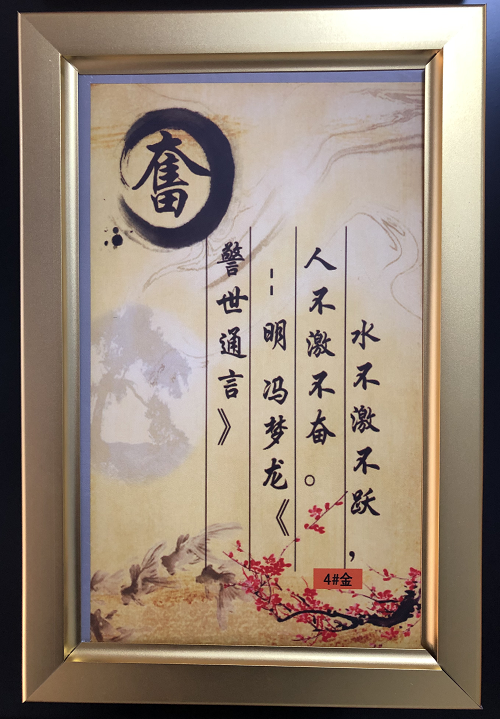 奮
水不激不跃，
人不激不奋。
--明 冯梦龙《
警世通言》
4#金